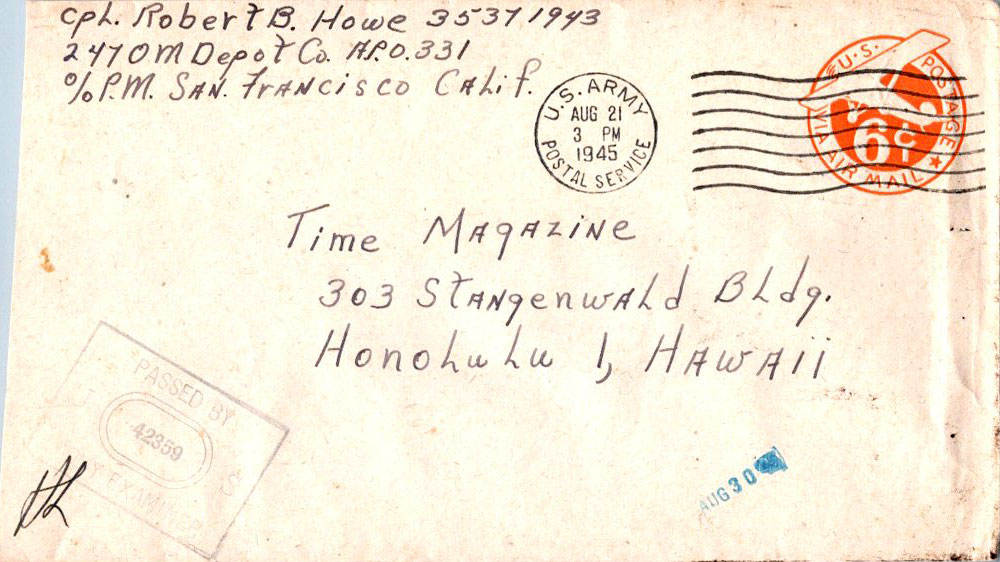 Cpl. Robert B. Howe 35371943
247 QM Depot Co. A.P.O. 331
c/o P.M. San. Francisco Calif.
U.S. ARMY
AUG 21
3 PM
1945
POSTAL SERVICE
U.S. POSTAGE
6¢
VIA AIR MAIL
Time Magazine
303 Stangenwald Bldg.
Honolulu 1, Hawaii
PASSED BY
42359
EXAMINER
AUG 30